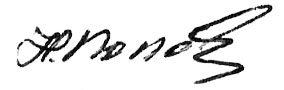 Н.Попов